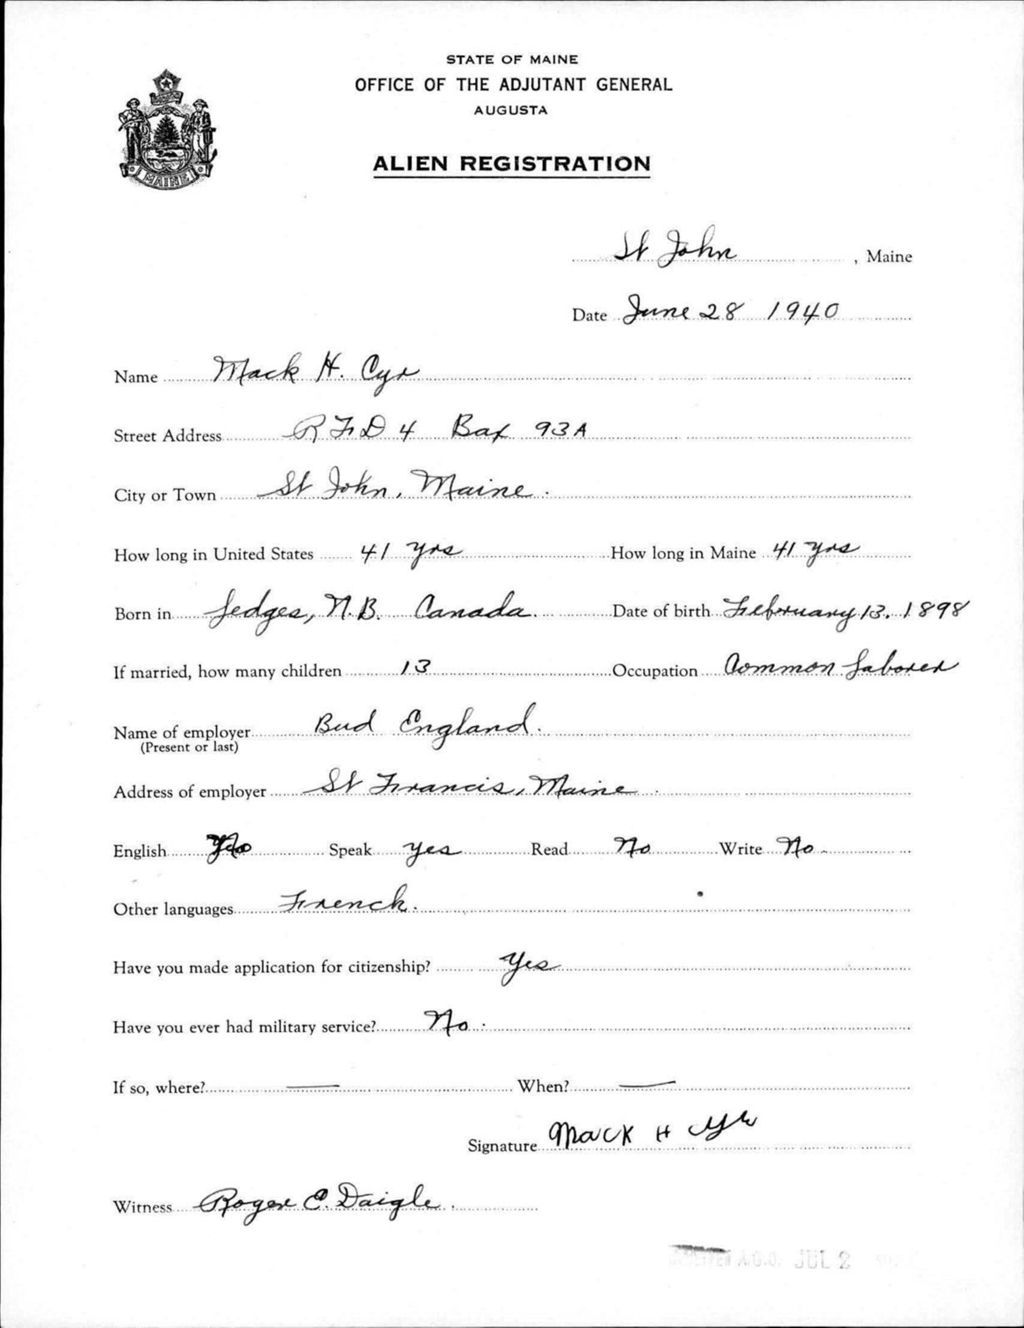 STATE OF MAINE
OFFICE OF THE ADJUTANT GENERAL
AUGUSTA
ALIEN REGISTRATION
MAINE
St John, Maine
Date June 28 1940
Name Mack H. Cyr
Street Address R F D 4 Box 93A
City or Town St John, Maine.
How long in United States 41 yrs How long in Maine 41 yrs
Born in Ledges, N.B. Canada. Date of birth February 13, 1898
If married, how many children 13 Occupation Common Laborer
Name of employer Bud England.
(Present or last)
Address of employer St Francis, Maine.
English Speak yes Read No Write No
Other languages French.
Have you made application for citizenship? Yes
Have you ever had military service? No.
If so, where? — When? —
Signature Mack H Cyr
Witness Roger E. Daigle.
A.G.O. JUL 2